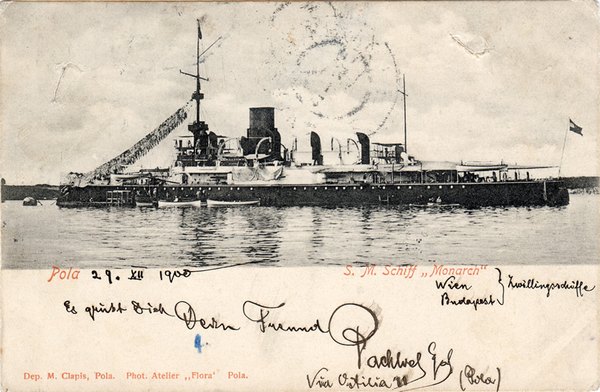 Pola 29. XII 1900
S. M. Schiff „Monarch"
Wien
Budapest } Zwillingsschiffe
Es grüßt Dich Dein Freund
Via Ostilia
(Pola)
Dep. M. Clapis, Pola. Phot. Atelier „Flora' Pola.